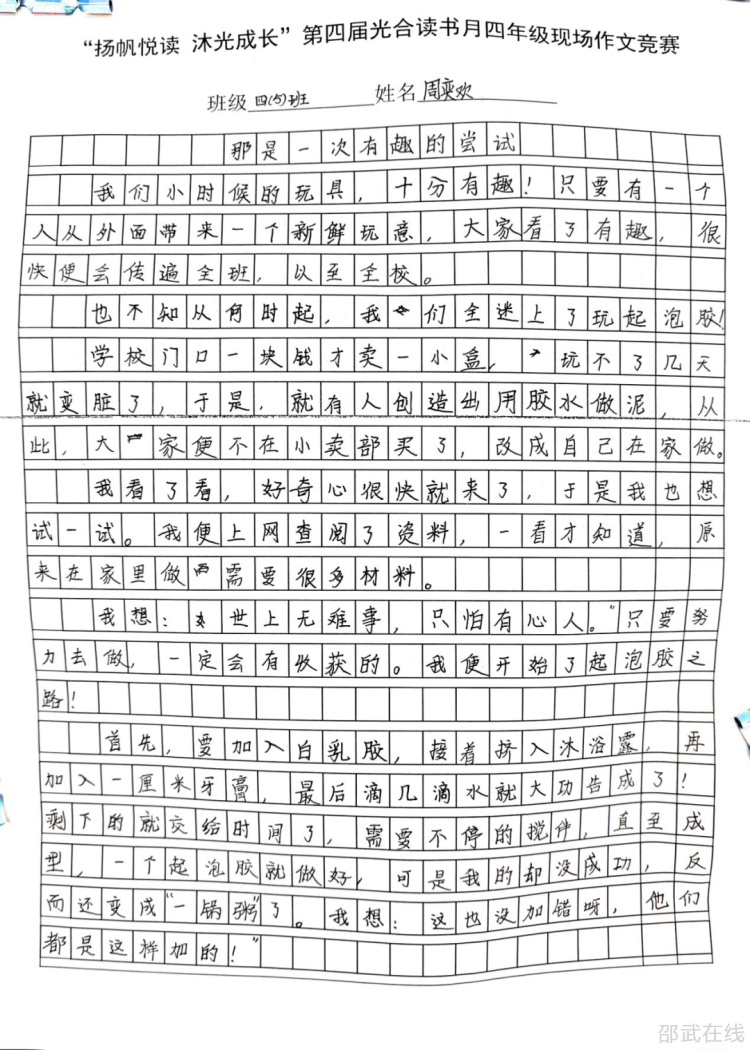 “扬帆悦读 沐光成长”第四届光合读书月四年级现场作文竞赛
班级 四(5)班 姓名 周奕欢
那是一次有趣的尝试
我们小时候的玩具，十分有趣！只要有一个
人从外面带来一个新鲜玩意，大家看了有趣，很
快便会传遍全班，以至全校。
也不知从何时起，我们全迷上了玩起泡胶！
学校门口一块钱才卖一小盒，玩不了几天
就变脏了，于是，就有人创造出用胶水做泥，从
此，大家便不在小卖部买了，改成自己在家做。
我看了看，好奇心很快就来了，于是我也想
试一试。我便上网查阅了资料，一看才知道，原
来在家里做需要很多材料。
我想：世上无难事，只怕有心人。”只要努
力去做，一定会有收获的。我便开始了起泡胶之
路！
首先，要加入白乳胶，接着挤入沐浴露，再
加入一厘米牙膏，最后滴几滴水就大功告成了！
剩下的就交给时间了，需要不停的搅伴，直至成
型，一个起泡胶就做好，可是我的却没成功，反
而还变成“一锅粥”了。我想：这也没加错呀，他们
都是这样加的！”
邵武在线